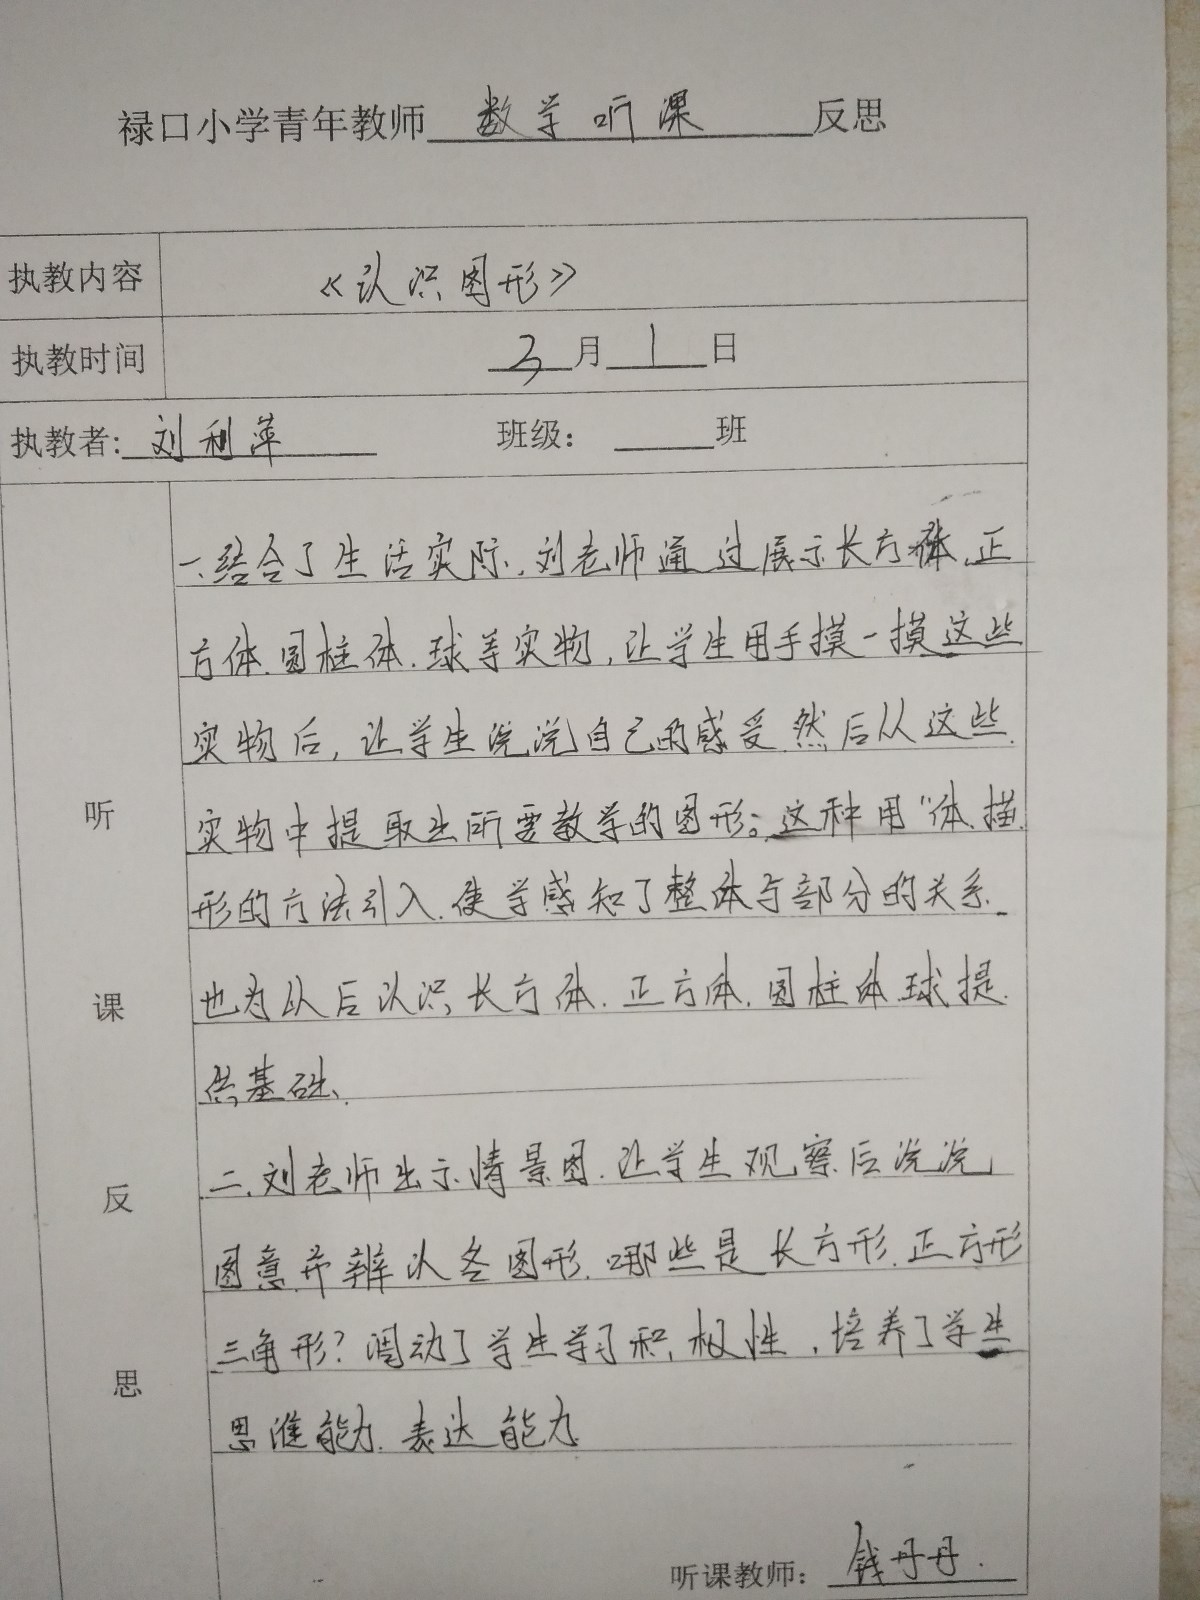 禄口小学青年教师 数学听课 反思
执教内容 《认识图形》
执教时间 3月1日
执教者: 刘利萍 班级: 班
听课反思
一、结合了生活实际,刘老师通过展示长方体、正
方体、圆柱体、球等实物,让学生用手摸一摸这些
实物后,让学生说说自己的感受 然后从这些
实物中提取出所要教学的图形。这种用“体.描
形的方法引入.使学感知了整体与部分的关系.
也为以后认识长方体.正方体.圆柱体.球提
供基础、
二、刘老师出示情景图.让学生观察后说说
图意.并辨认各图形.哪些是长方形.正方形
三角形?调动了学生学习积极性,培养了学生
思维能力.表达能力
听课教师: 钱丹丹.